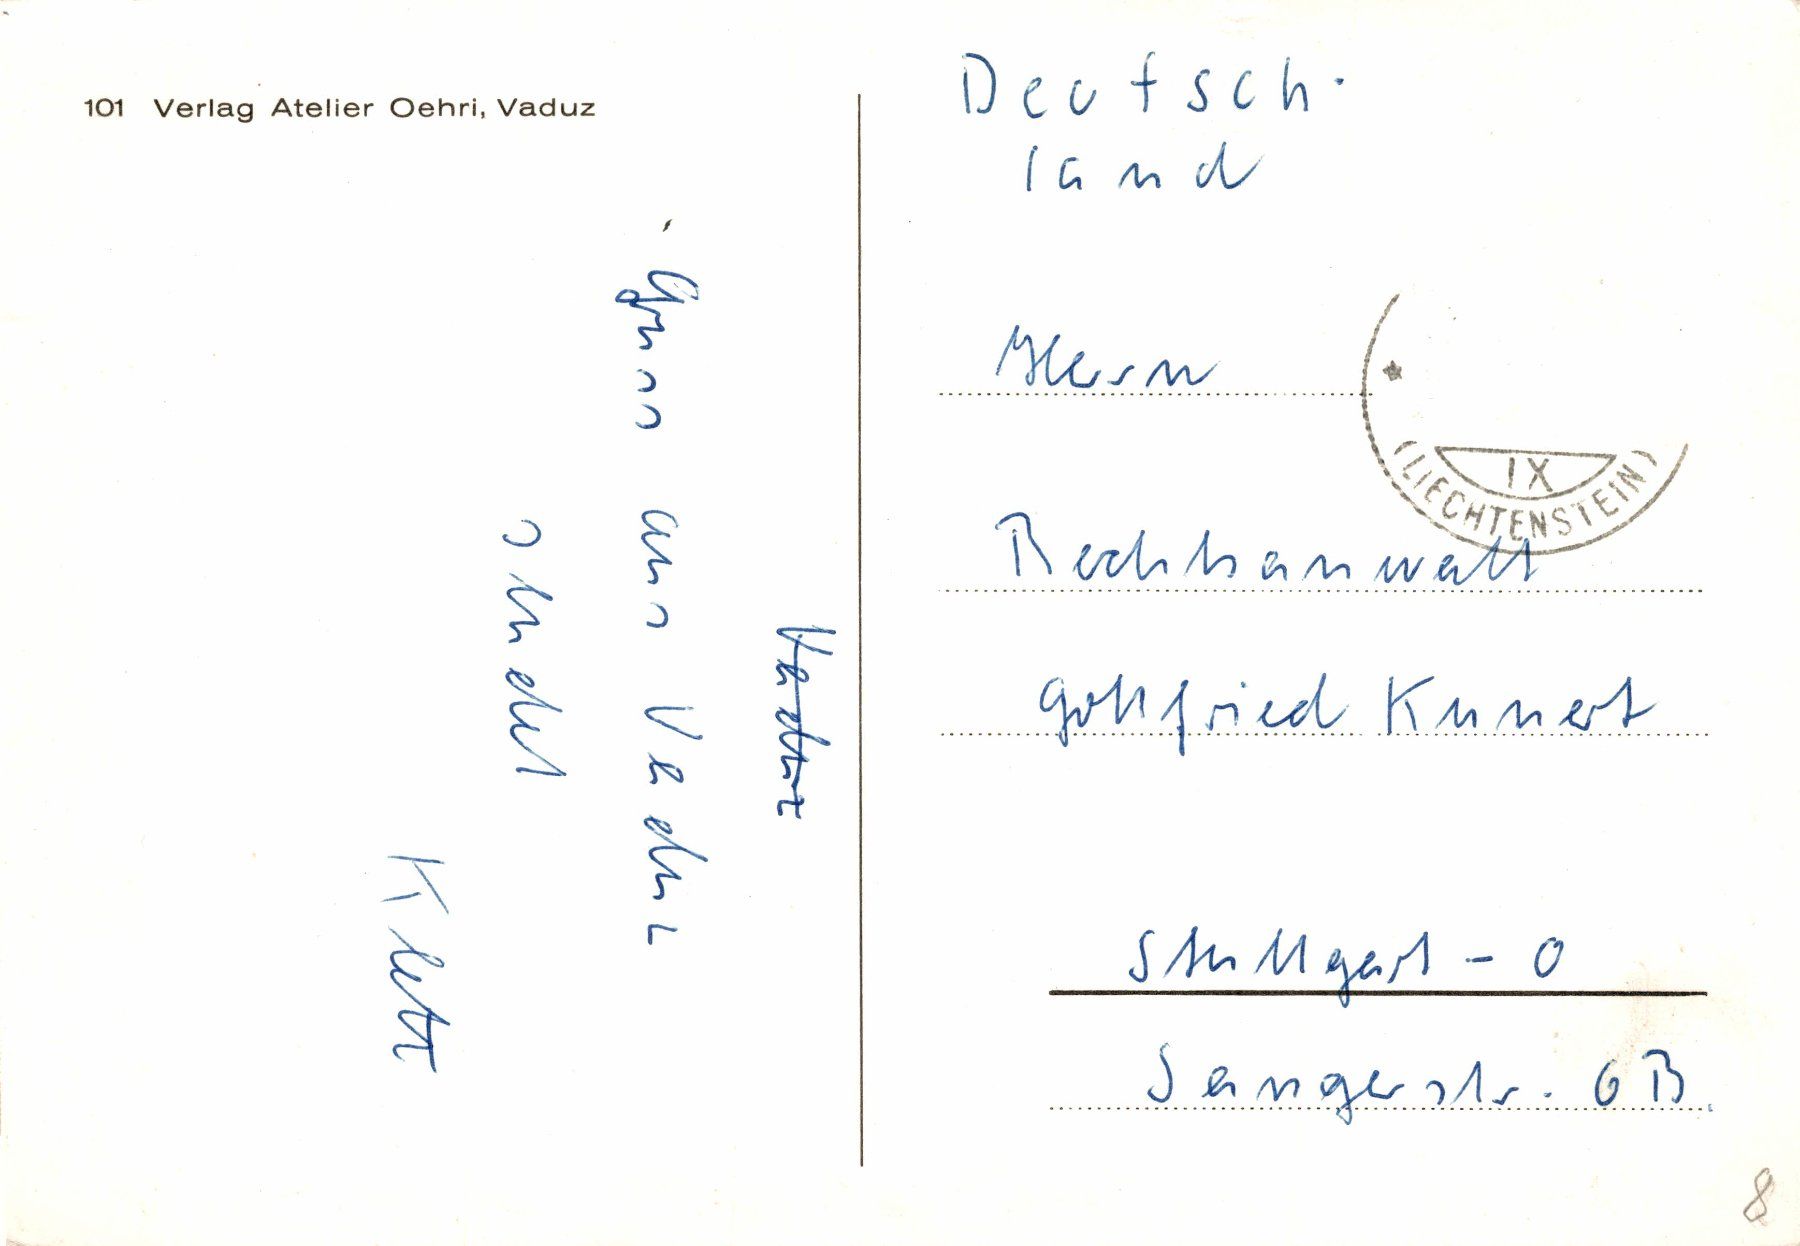 101 Verlag Atelier Oehri, Vaduz
Vaduz
Gruss aus Vaduz
sendet
Klett
Deutsch-
land
Herrn
Rechtsanwalt
Gottfried Kunert
Stuttgart - O
Sängerstr. 6 B.
IX
(LIECHTENSTEIN)
8